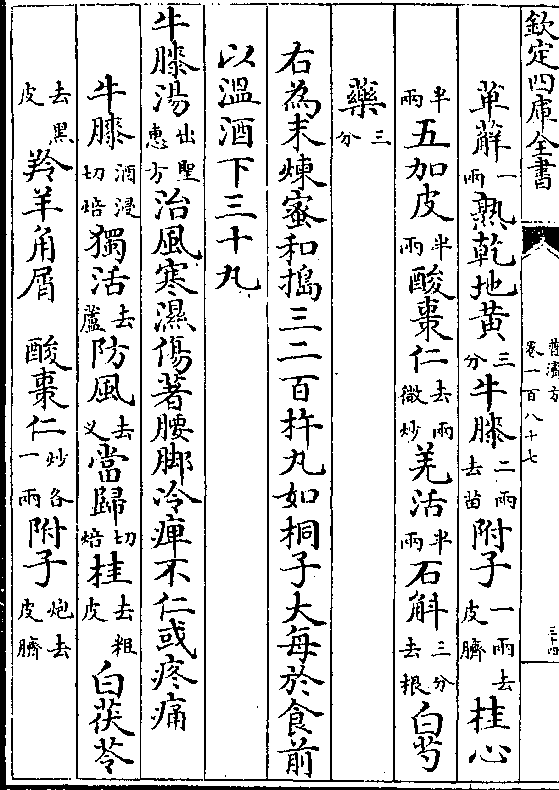 欽定四庫全書
普濟方
卷一百八十七
三十四
萆薢一兩熟乾地黄三分牛膝二兩去苗附子一兩去皮臍桂心
半兩五加皮半兩酸棗仁去兩微炒羌活半兩石斛三分去根白芍
藥三分
右為末煉蜜和搗三二百杵丸如桐子大每於食前
以溫酒下三十丸
牛膝湯出聖惠方治風寒濕傷著腰脚冷痺不仁或疼痛
牛膝酒浸切焙獨活去蘆防風去义當歸切焙桂去粗皮白茯苓
去黑皮羚羊角屑 酸棗仁炒各一兩附子炮去皮臍